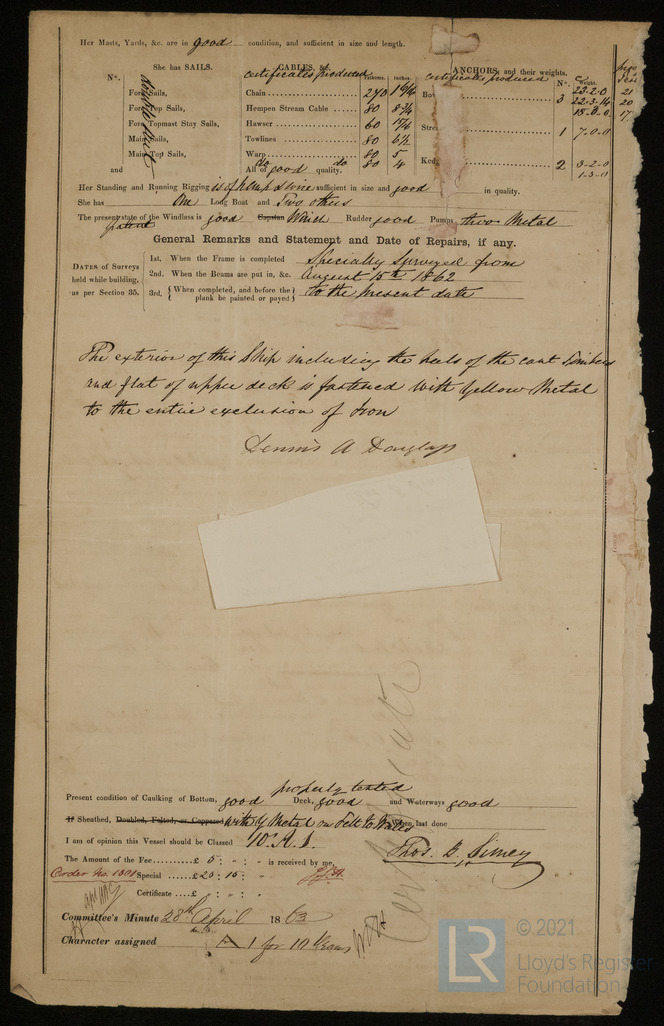 Her Masts, Yards, &c. are in good condition, and sufficient in size and length.
She has SAILS. CABLES, &c. ANCHORS, and their weights.
certificates produced certificates produced
N°. Fathoms. Inches. N°. Weight.
Fore Sails, Chain 270 3 23.2.0 21
Fore Top Sails, Hempen Stream Cable 80 22.3.14 20
Fore Topmast Stay Sails, Hawser 60 17
Main Sails, Towlines 80 6½ 1 7.0.0
Main Top Sails, Warp 80 5
and All of good quality. do do 80 4 2 3.2.0
1.3.0
Her Standing and Running Rigging is of hemp & wire sufficient in size and good in quality.
She has One Long Boat and Two others
The present state of the Windlass is good Capstan Winch Rudder good Pumps two Metal
patent
General Remarks and Statement and Date of Repairs, if any.
DATES of Surveys held while building, as per Section 35.
1st. When the Frame is completed Specially Surveyed from
2nd. When the Beams are put in, &c. August 15th 1862
3rd. { When completed, and before the plank be painted or payed } to the present date
The exterior of this Ship including the heels of the cant Timbers
and flat of upper deck is fastened with Yellow Metal
to the entire exclusion of Iron
Dennis A Douglass
properly tested
Present condition of Caulking of Bottom, good Deck, good and Waterways good
If Sheathed, Doubled, Felted, or Coppered with Y Metal on Felt to Wales When last done
I am of opinion this Vessel should be Classed 10 A.1.
The Amount of the Fee £ 5 : „ : „ is received by me,
Thos. D. Simey
Order No. 1301 Special £ 20 : 10 : „
Certificate £ „ : „ : „
Committee's Minute 28th April 1863
Character assigned A 1 for 10 Years
Certificate
© 2021
LR
Lloyd's Register
Foundation